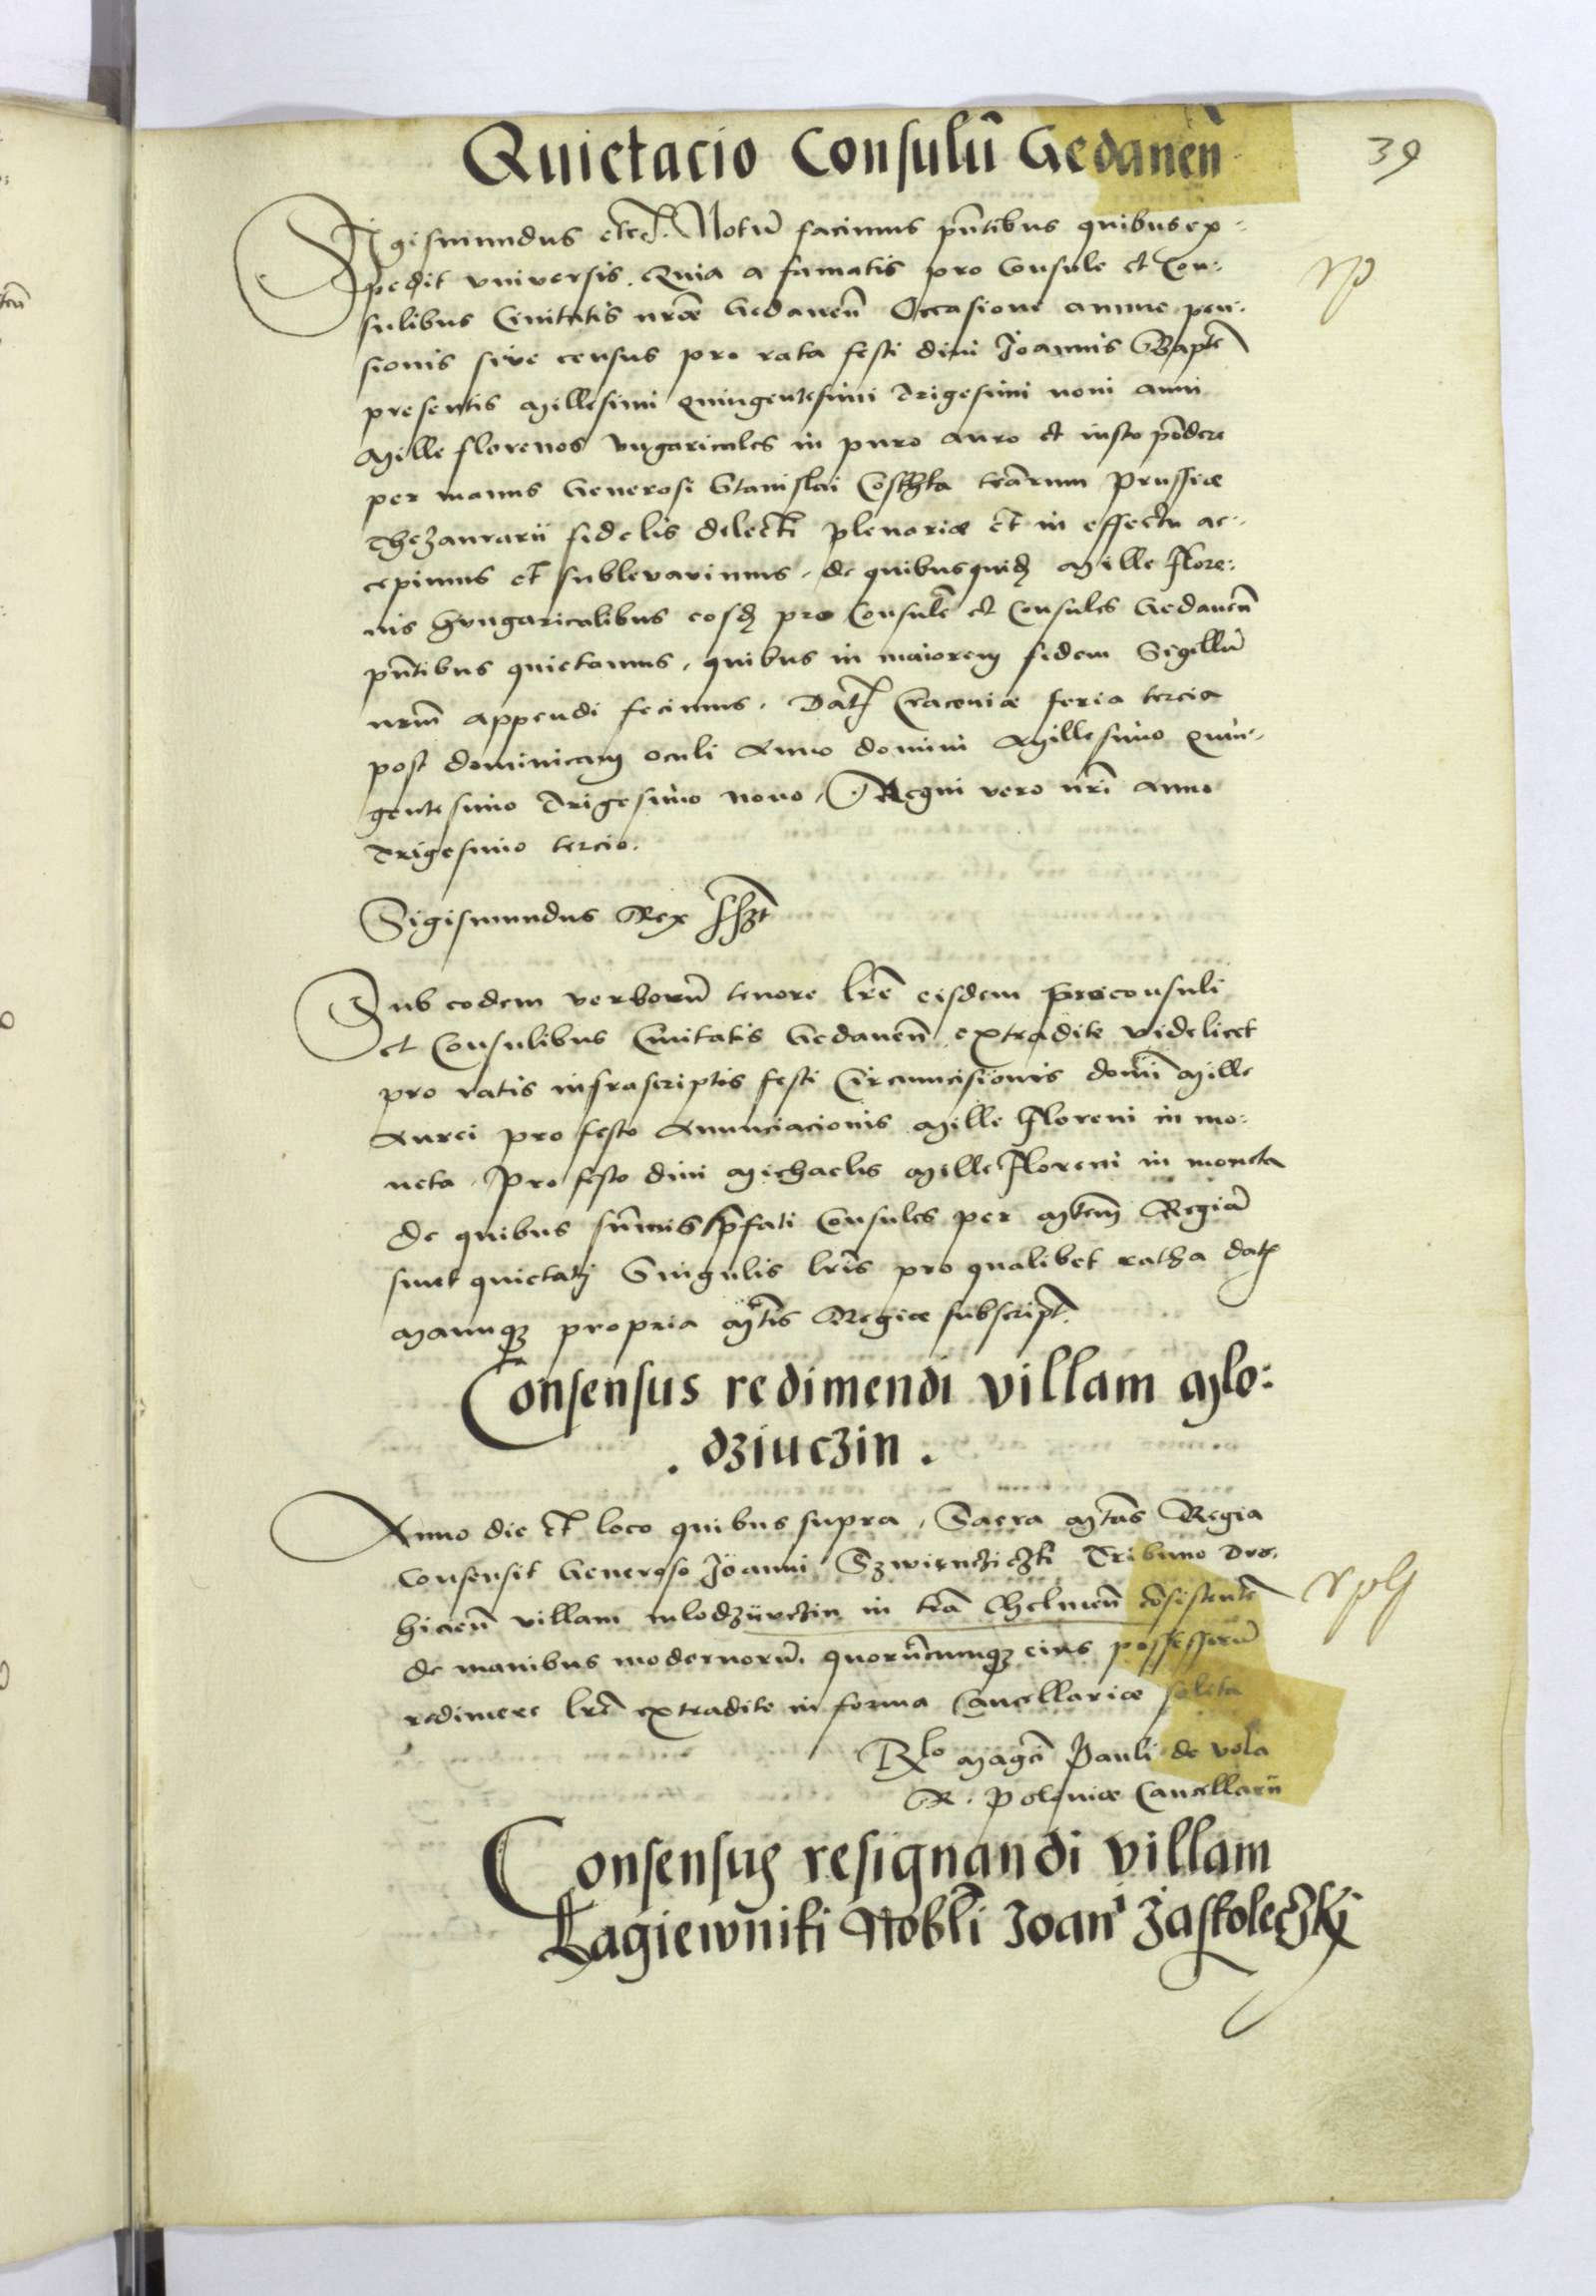 Quietacio Consulū Gedanen̄
39
Sigismundus etcͤ. Notū facimus pn̄tibus quibus ex-
pedit vniversis. Quia a famatis pro Consule et Con-
sulibus Civitatis nr̄æ Gedanen̄ Occasione annue pen-
sionis sive census pro rata festi divi Joannis Bapte
presentis Millesimi quingentesimi trigesimi noni anni
Mille florenos vngaricales in puro auro et iusto pōdere
per manus Generosi Stanislai Costhka terārum Prussiæ
Thezaurarii fidelis dilecti plenariæ et in effectu ac-
cepimus et sublevavimus, de quibus quidȝ Mille flore:
nis Hungaricalibus eosdȝ pro Consulē et Consules Gedanen̄
pn̄tibus quietamus, quibus in maiorem fidem Sigillū
nrm̄ appendi fecimus. Datȝ Cracoviæ feria tercia
post dominicam oculi Anno domini Millesimo quin-
gentesimo trigesimo nono, Regni vero nr̄i anno
trigesimo tercio.
Sigismundus Rex sszt
Sub eodem verborū tenore lrē eisdem Proconsuli
et Consulibus Civitatis Gedanen̄ extradite videlicet
pro ratis infrascriptis festi Circumcisionis domī Mille
Aurei pro festo Anunciacionis Mille Floreni in mo:
neta, Pro festo divi Michaelis Mille Floreni in moneta
de quibus sum̄is p̄fati Consules per Mtem̄ Regiā
sunt quietati Singulis lrīs pro qualibet ratha datȝ
Manuqȝ propria Mtīs Regiæ subscript.
Consensus redimendi villam Mlo:
. dziuczin .
Anno die et loco quibus supra, Sacra Mtās Regia
Consensit Generoso Joanni Szwirnczicȝki Tribuno Dro,
hicien̄ villam mlodziuczin in trā Chelmen̄ cōsistentē
de manibus modernorū, quorūcumqȝ eius possessorū
redimere lrē extradite in forma Cancellariæ solita
Rlo Magci Pauli de vola
R. Poloniæ Cancellarii
Consensus resignandi villam
Lagiewniki Nobli Joani Jaskoleczkj